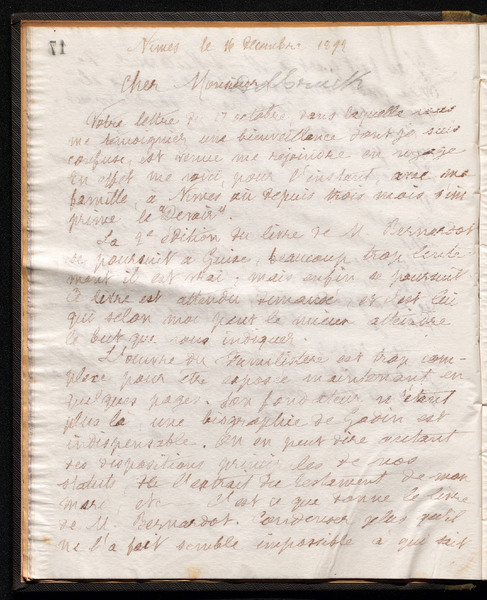 17
Nîmes le 16 Décembre 1892
Cher Monsieur
Votre lettre du 17 octobre dans laquelle vous
me témoignez une bienveillance dont je suis
confuse, est venue me rejoindre en voyage
en effet me voici, pour l'instant, avec ma
famille, à Nîmes où depuis trois mois s'im
prime le "Devoir".
La 2e édition du livre de M. Bernardot
se poursuit à Guise, beaucoup trop lente
ment il est vrai - mais enfin se poursuit
Ce livre est attendu demandé, et c'est lui
qui selon moi peut le mieux atteindre
le but que vous indiquez.
L'œuvre du Familistère est trop com-
plexe pour être exposée maintenant en
quelques pages. Son fondateur n'étant
plus là une biographie de Godin est
indispensable. On en peut dire autant
des dispositions principales de nos
statuts de l'extrait du testament de mon
mari etc - C'est ce que donne le livre
de M. Bernardot. Condenser plus qu'il
ne l'a fait semble impossible à qui sait